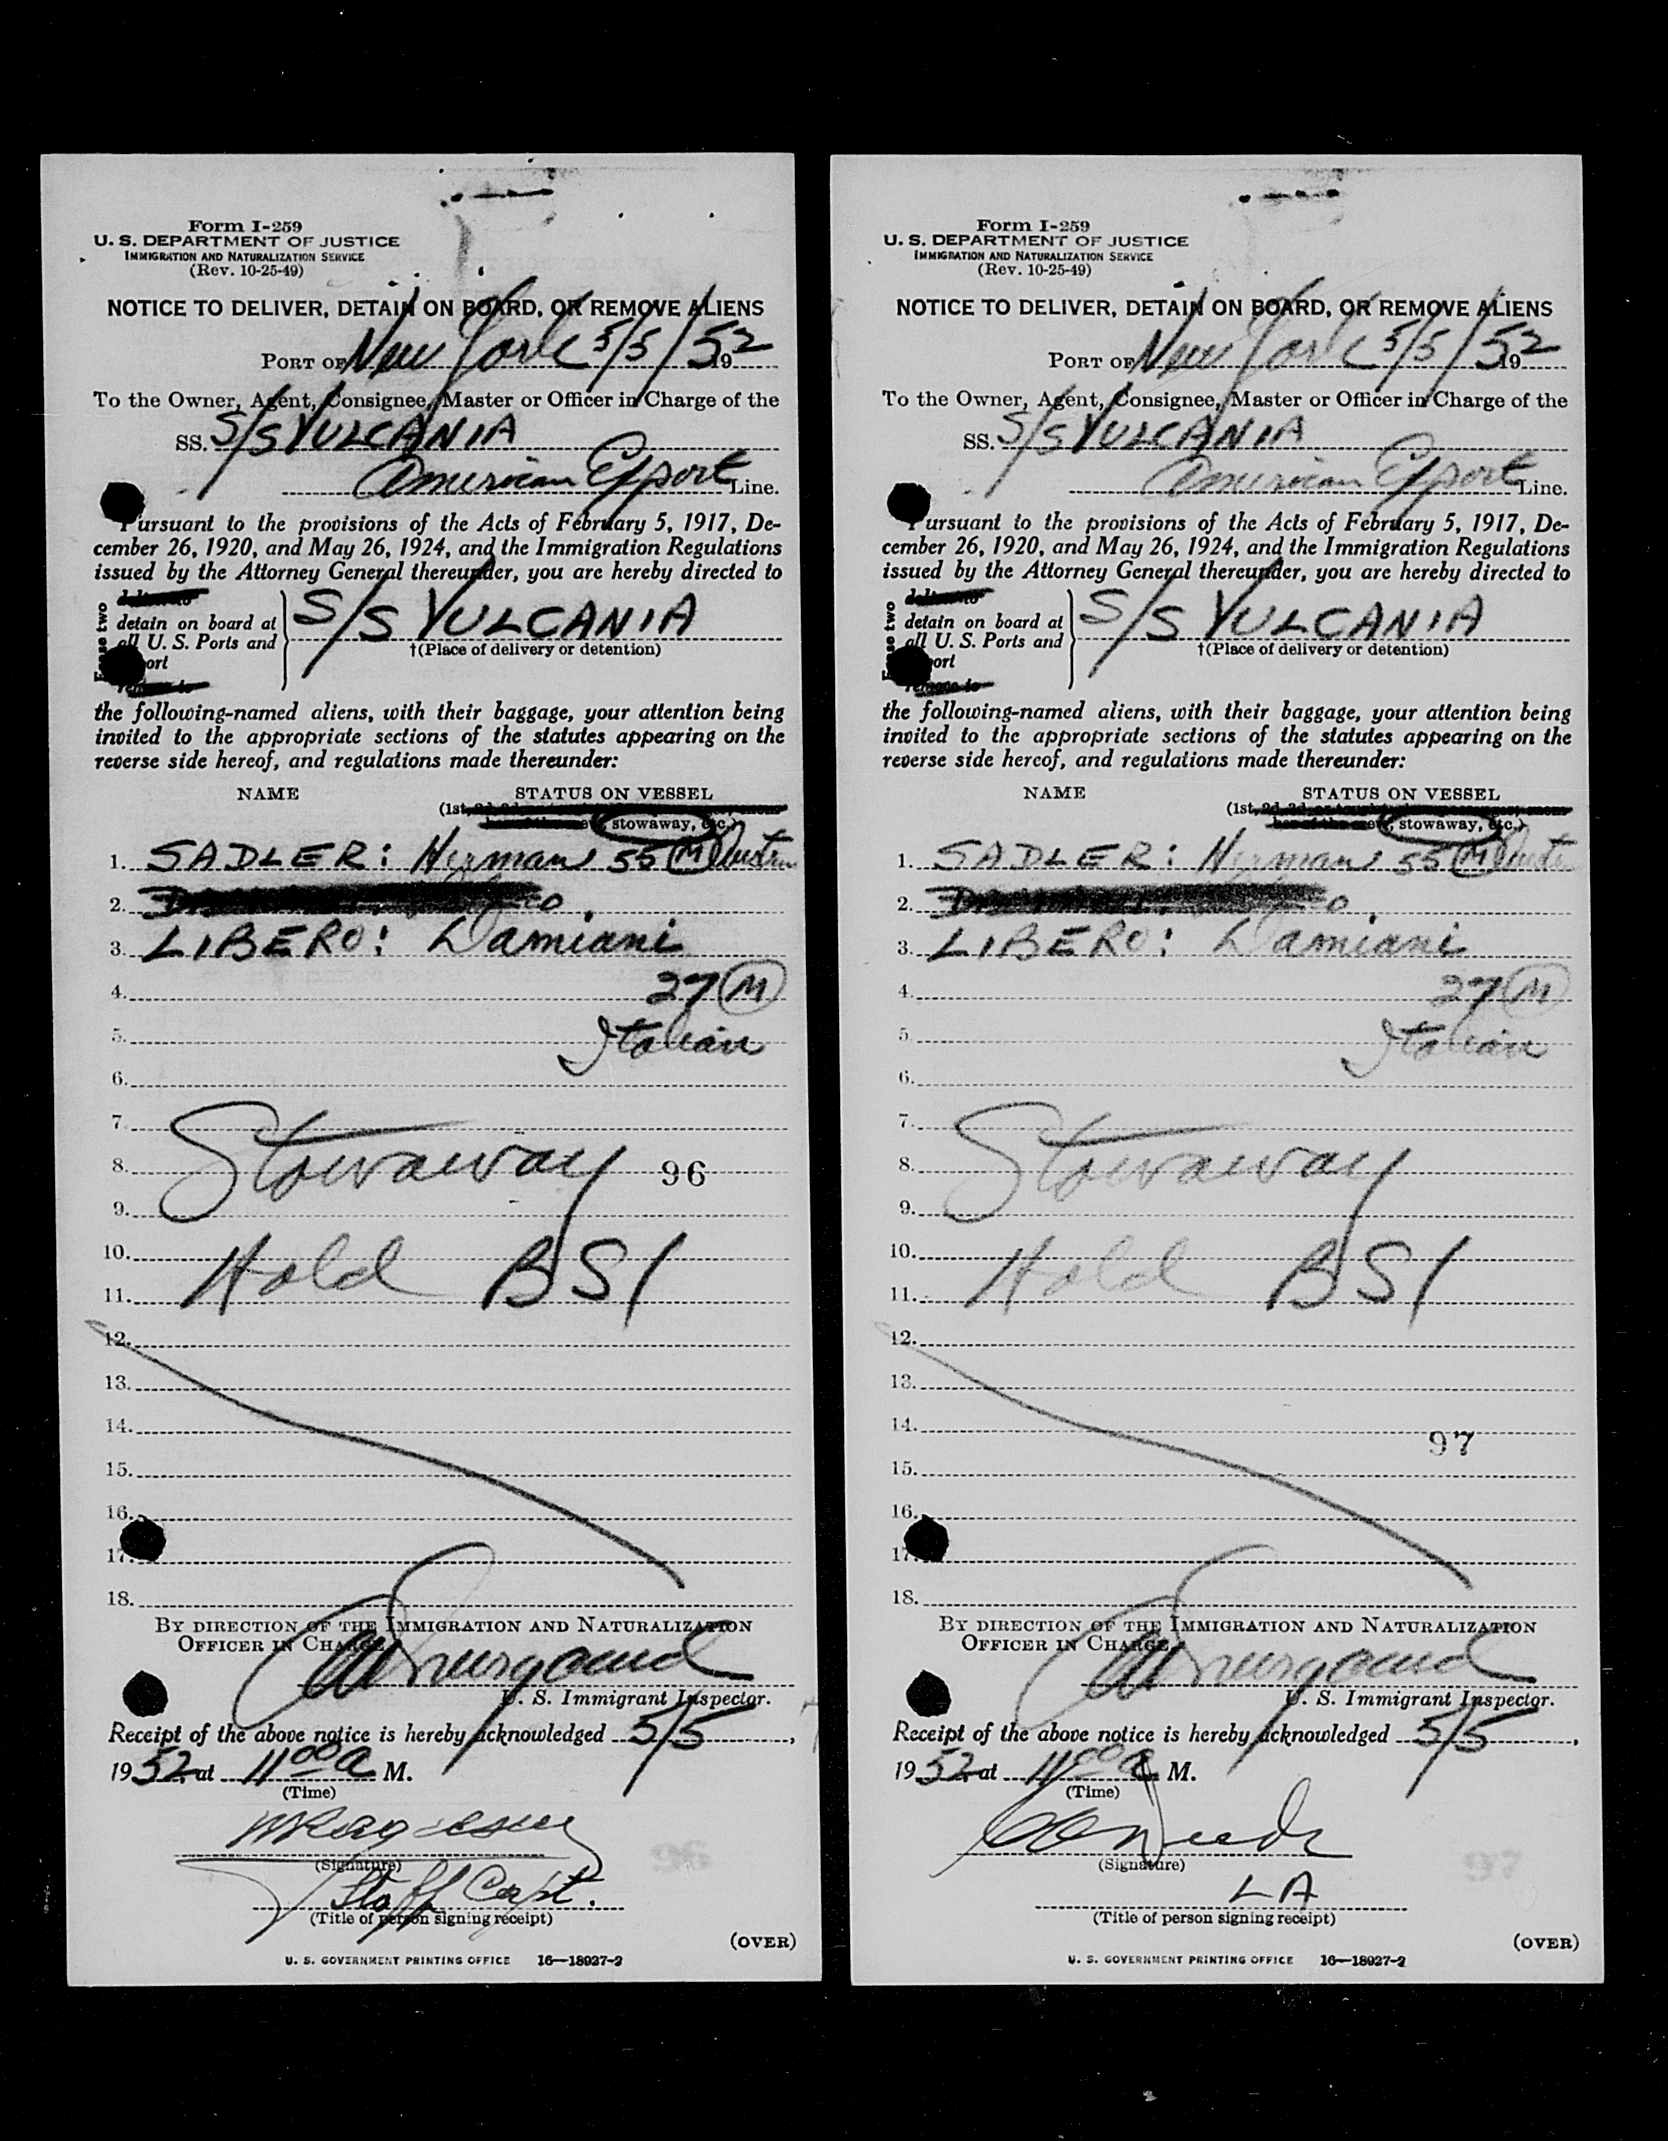 Form I-259
U. S. DEPARTMENT OF JUSTICE
IMMIGRATION AND NATURALIZATION SERVICE
(Rev. 10-25-49)
NOTICE TO DELIVER, DETAIN ON BOARD, OR REMOVE ALIENS
PORT OF New York 5/5/52 19
To the Owner, Agent, Consignee, Master or Officer in Charge of the
SS. S/S VULCANIA
American Export Line.
Pursuant to the provisions of the Acts of February 5, 1917, De-
cember 26, 1920, and May 26, 1924, and the Immigration Regulations
issued by the Attorney General thereunder, you are hereby directed to
detain on board at
all U. S. Ports and
S/S VULCANIA
†(Place of delivery or detention)
the following-named aliens, with their baggage, your attention being
invited to the appropriate sections of the statutes appearing on the
reverse side hereof, and regulations made thereunder:
NAME STATUS ON VESSEL
(1st,
stowaway, etc.)
1. SADLER: Herman 55 M
2.
3. LIBERO: Damiani
4. 27 M
5. Italian
6.
7.
8. Stowaway 96
9.
10. Hold BSI
11.
12.
13.
14.
15.
16.
17.
18.
BY DIRECTION OF THE IMMIGRATION AND NATURALIZATION
OFFICER IN CHARGE
U. S. Immigrant Inspector.
Receipt of the above notice is hereby acknowledged 5/5,
1952 at 11 00 a M.
(Time)
(Signature)
96
Staff Capt.
(Title of person signing receipt)
(OVER)
U. S. GOVERNMENT PRINTING OFFICE 16—18027-2
Form I-259
U. S. DEPARTMENT OF JUSTICE
IMMIGRATION AND NATURALIZATION SERVICE
(Rev. 10-25-49)
NOTICE TO DELIVER, DETAIN ON BOARD, OR REMOVE ALIENS
PORT OF New York 5/5/52 19
To the Owner, Agent, Consignee, Master or Officer in Charge of the
SS. S/S VULCANIA
American Export Line.
Pursuant to the provisions of the Acts of February 5, 1917, De-
cember 26, 1920, and May 26, 1924, and the Immigration Regulations
issued by the Attorney General thereunder, you are hereby directed to
detain on board at
all U. S. Ports and
S/S VULCANIA
†(Place of delivery or detention)
the following-named aliens, with their baggage, your attention being
invited to the appropriate sections of the statutes appearing on the
reverse side hereof, and regulations made thereunder:
NAME STATUS ON VESSEL
(1st,
stowaway, etc.)
1. SADLER: Herman 55 M
2.
3. LIBERO: Damiani
4. 27 M
5. Italian
6.
7.
8. Stowaway
9.
10. Hold BSI
11.
12.
13.
14. 97
15.
16.
17.
18.
BY DIRECTION OF THE IMMIGRATION AND NATURALIZATION
OFFICER IN CHARGE
U. S. Immigrant Inspector.
Receipt of the above notice is hereby acknowledged 5/5,
1952 at 11 00 a M.
(Time)
(Signature)
97
LA
(Title of person signing receipt)
(OVER)
U. S. GOVERNMENT PRINTING OFFICE 16—18027-2